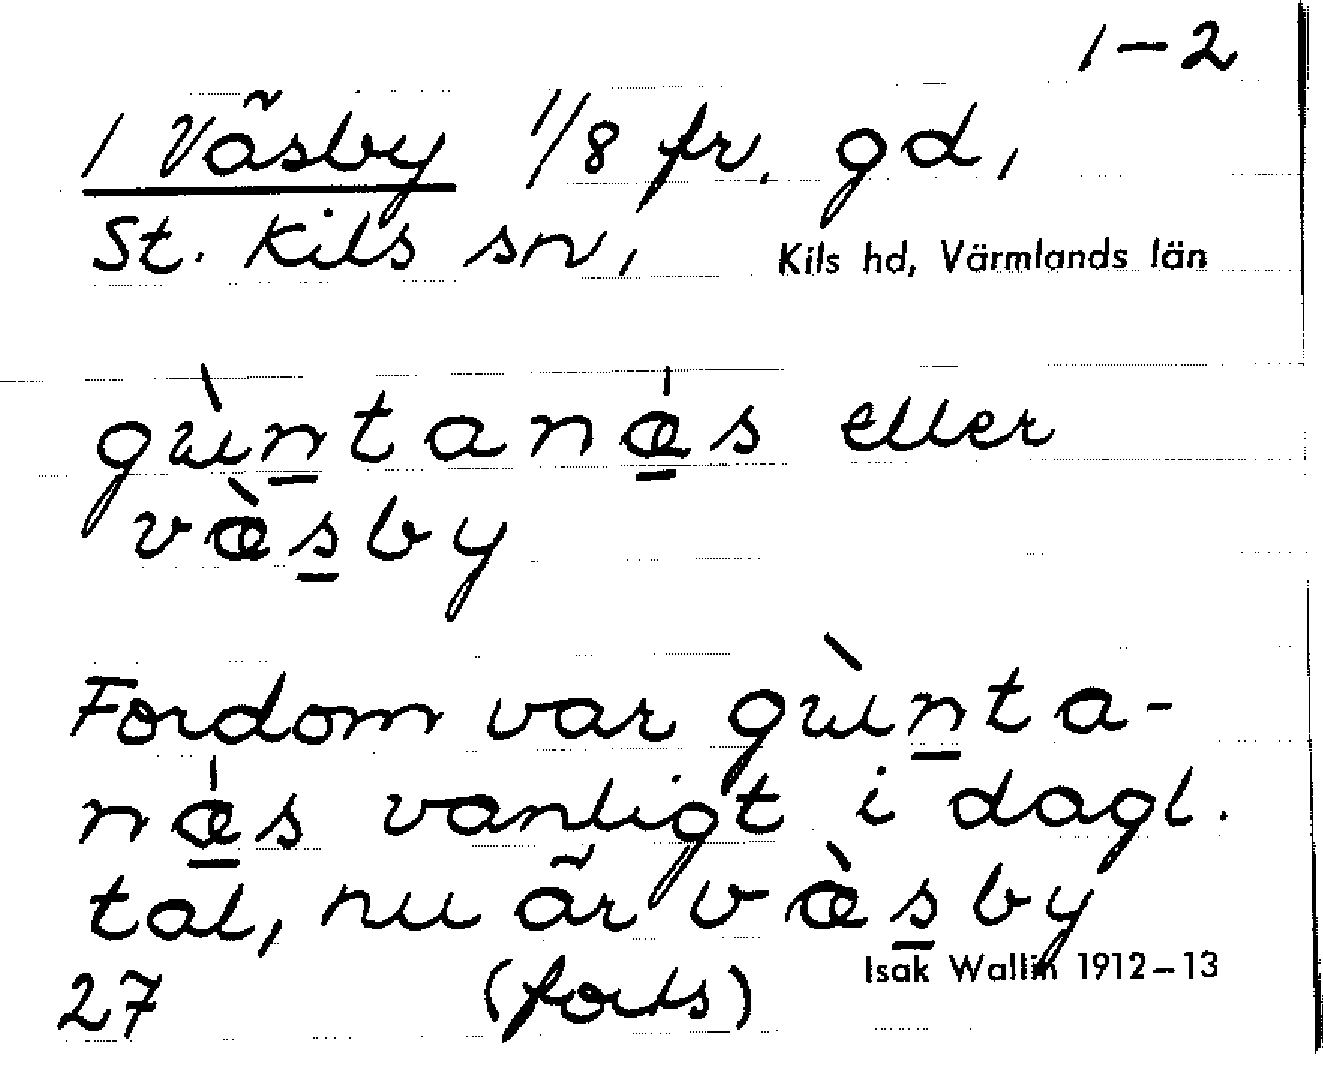 1-2
1 Väsby 1/8 fr. gd,
St. Kils sn, Kils hd, Värmlands län
gùi̱ntanǽs eller
væ̀sby
Fordom var gùi̱nta-
nǽs vanligt i dagl.
tal, nu är væ̀sby
27 (forts) Isak Wallin 1912-13